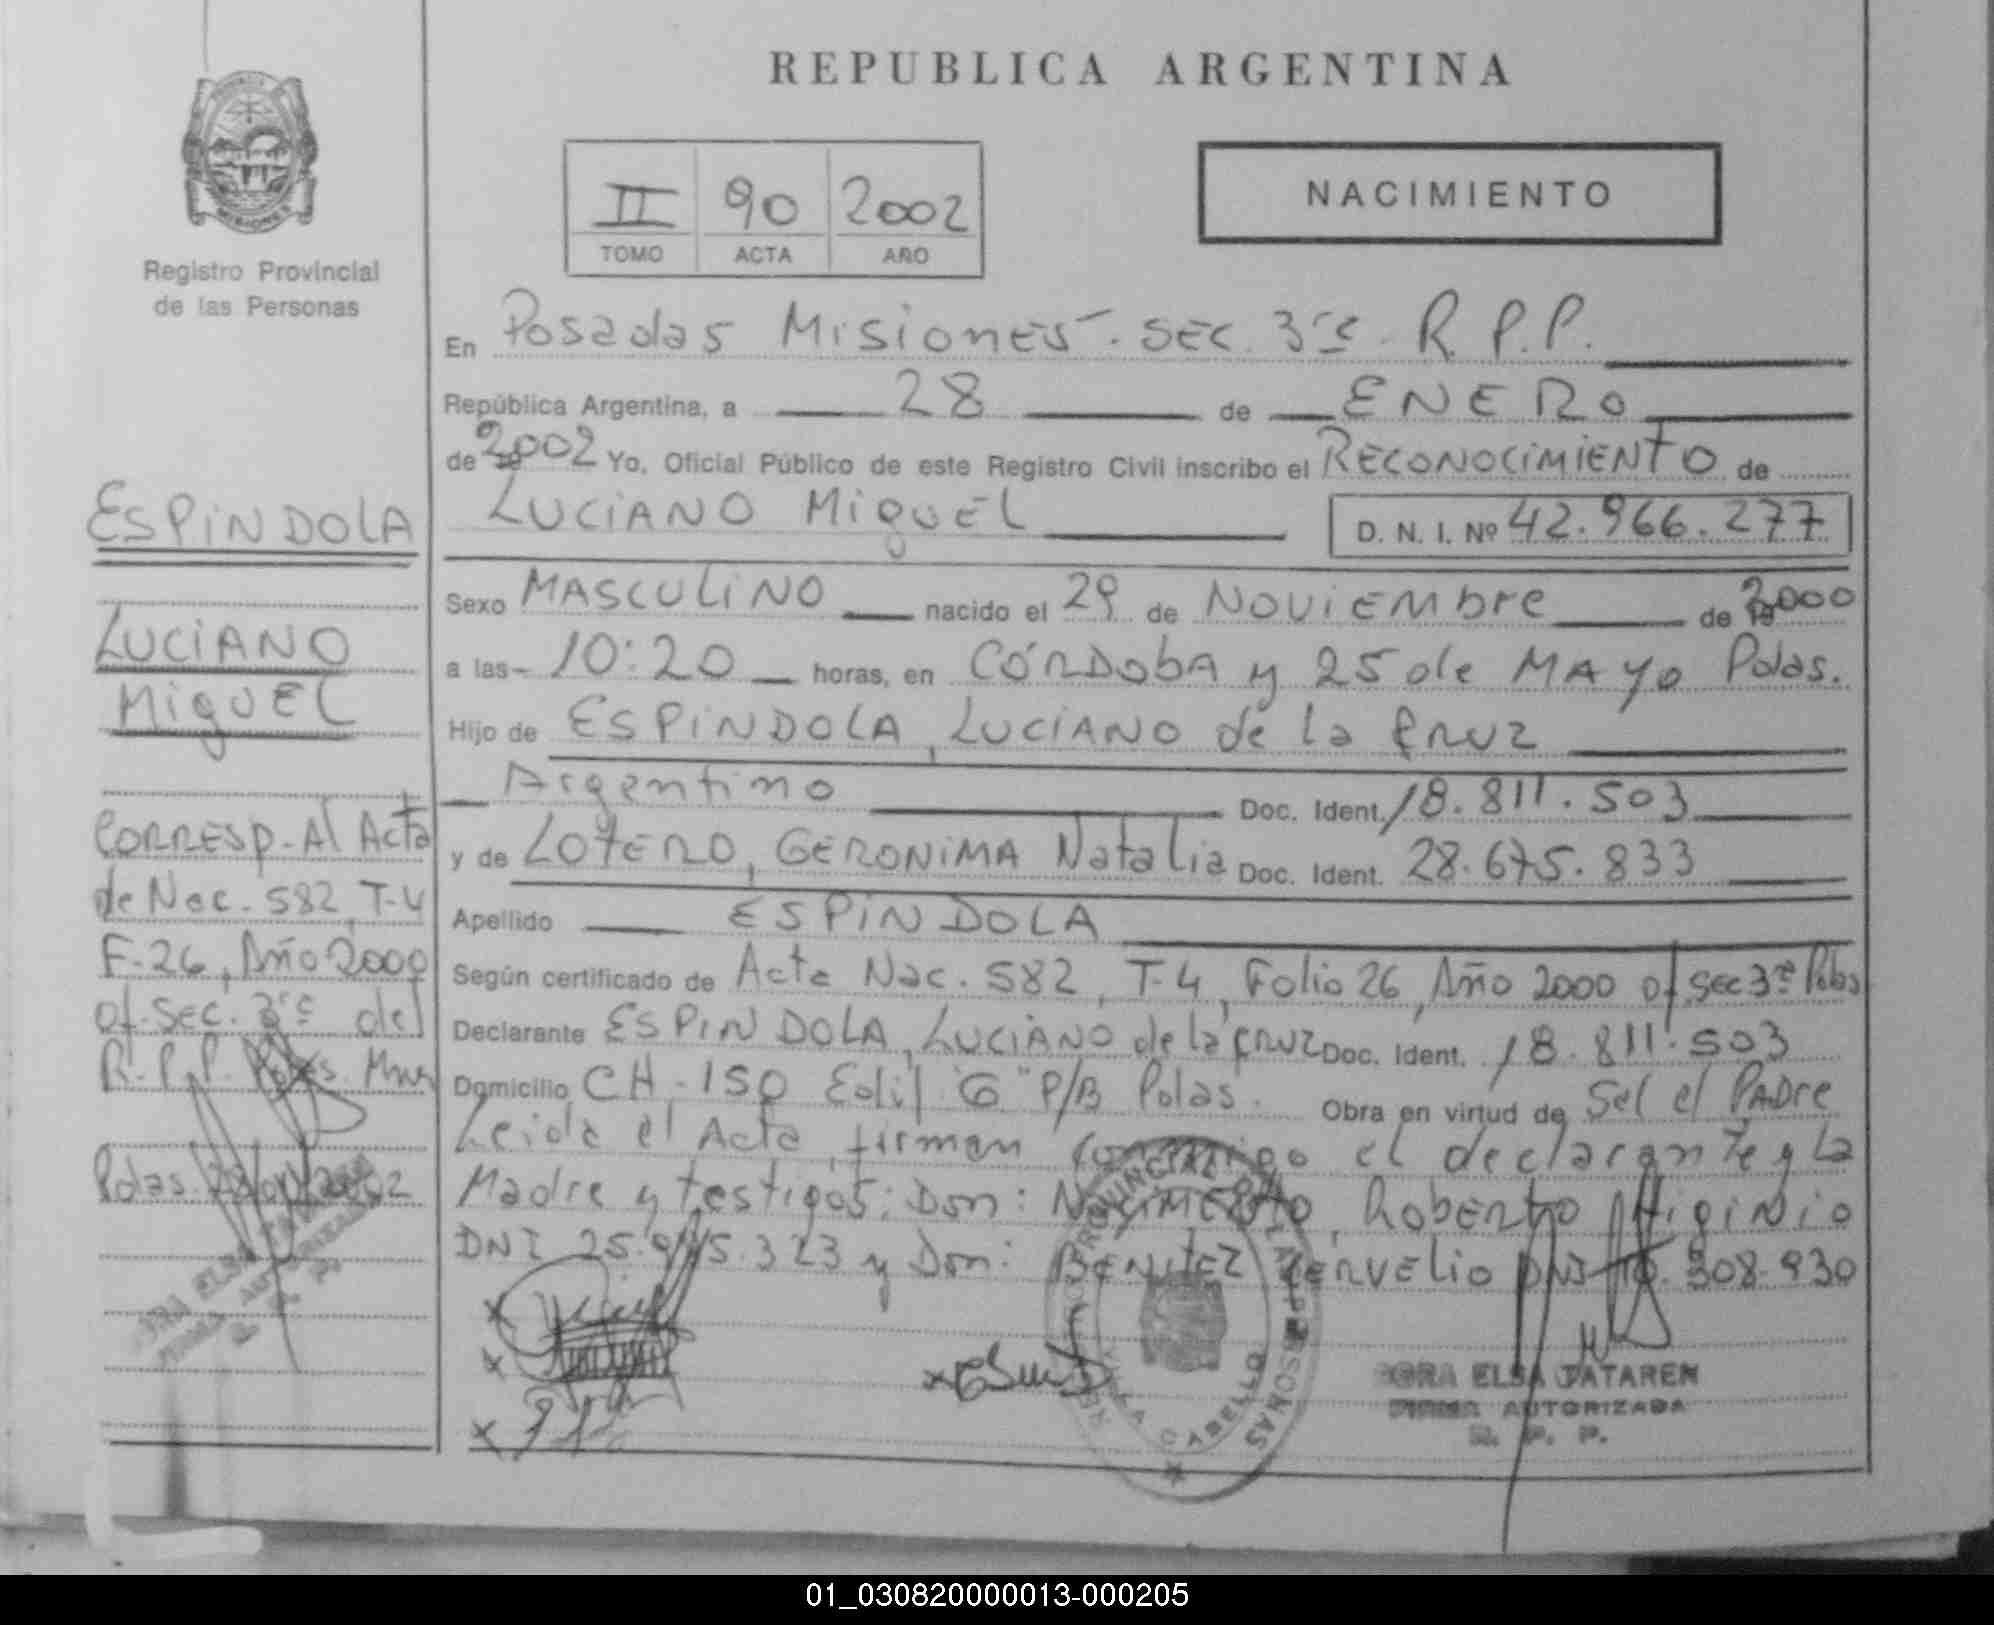 REPUBLICA ARGENTINA
II 90 2002
TOMO ACTA AÑO
NACIMIENTO
MISIONES
Registro Provincial
de las Personas
ESPINDOLA
LUCIANO
MIGUEL
CORRESP. Al Acta
de Nac. 582, T-4
F-26, Año 2000
of. Sec. 3ra del
R.P.P. Mnes
Pdas.
En Posadas Misiones - SEC. 3ra R.P.P.
República Argentina, a 28 de ENERO
de 2002 Yo, Oficial Público de este Registro Civil inscribo el RECONOCIMIENTO de
LUCIANO MIGUEL D. N. I. Nº 42.966.277
Sexo MASCULINO nacido el 29 de NOVIEMbre de 2000
a las 10:20 horas, en CÓRDObA y 25 de MAYO Pdas.
Hijo de ESPINDOLA, LUCIANO de la CRUZ
Argentino Doc. Ident. 18.811.503
y de LOTERO, GERONIMA Natalia Doc. Ident. 28.675.833
Apellido ESPINDOLA
Según certificado de Acta Nac. 582, T-4, Folio 26, Año 2000 of. Sec 3ra Pdas
Declarante ESPINDOLA, LUCIANO de la CRUZ Doc. Ident. 18.811.503
Domicilio CH-150 Edif. 6 P/B Pdas. Obra en virtud de Ser el PADre
Leida el Acta, firman conmigo el declarante y la
Madre y testigos: Don: Roberto Higinio
DNI y Don: BENITEZ DNI 308.930
REGISTRO PROVINCIAL DE LAS PERSONAS
VILLA CABELLO
ELSA TATAREN
FIRMA AUTORIZADA
R. P. P.
01_030820000013-000205